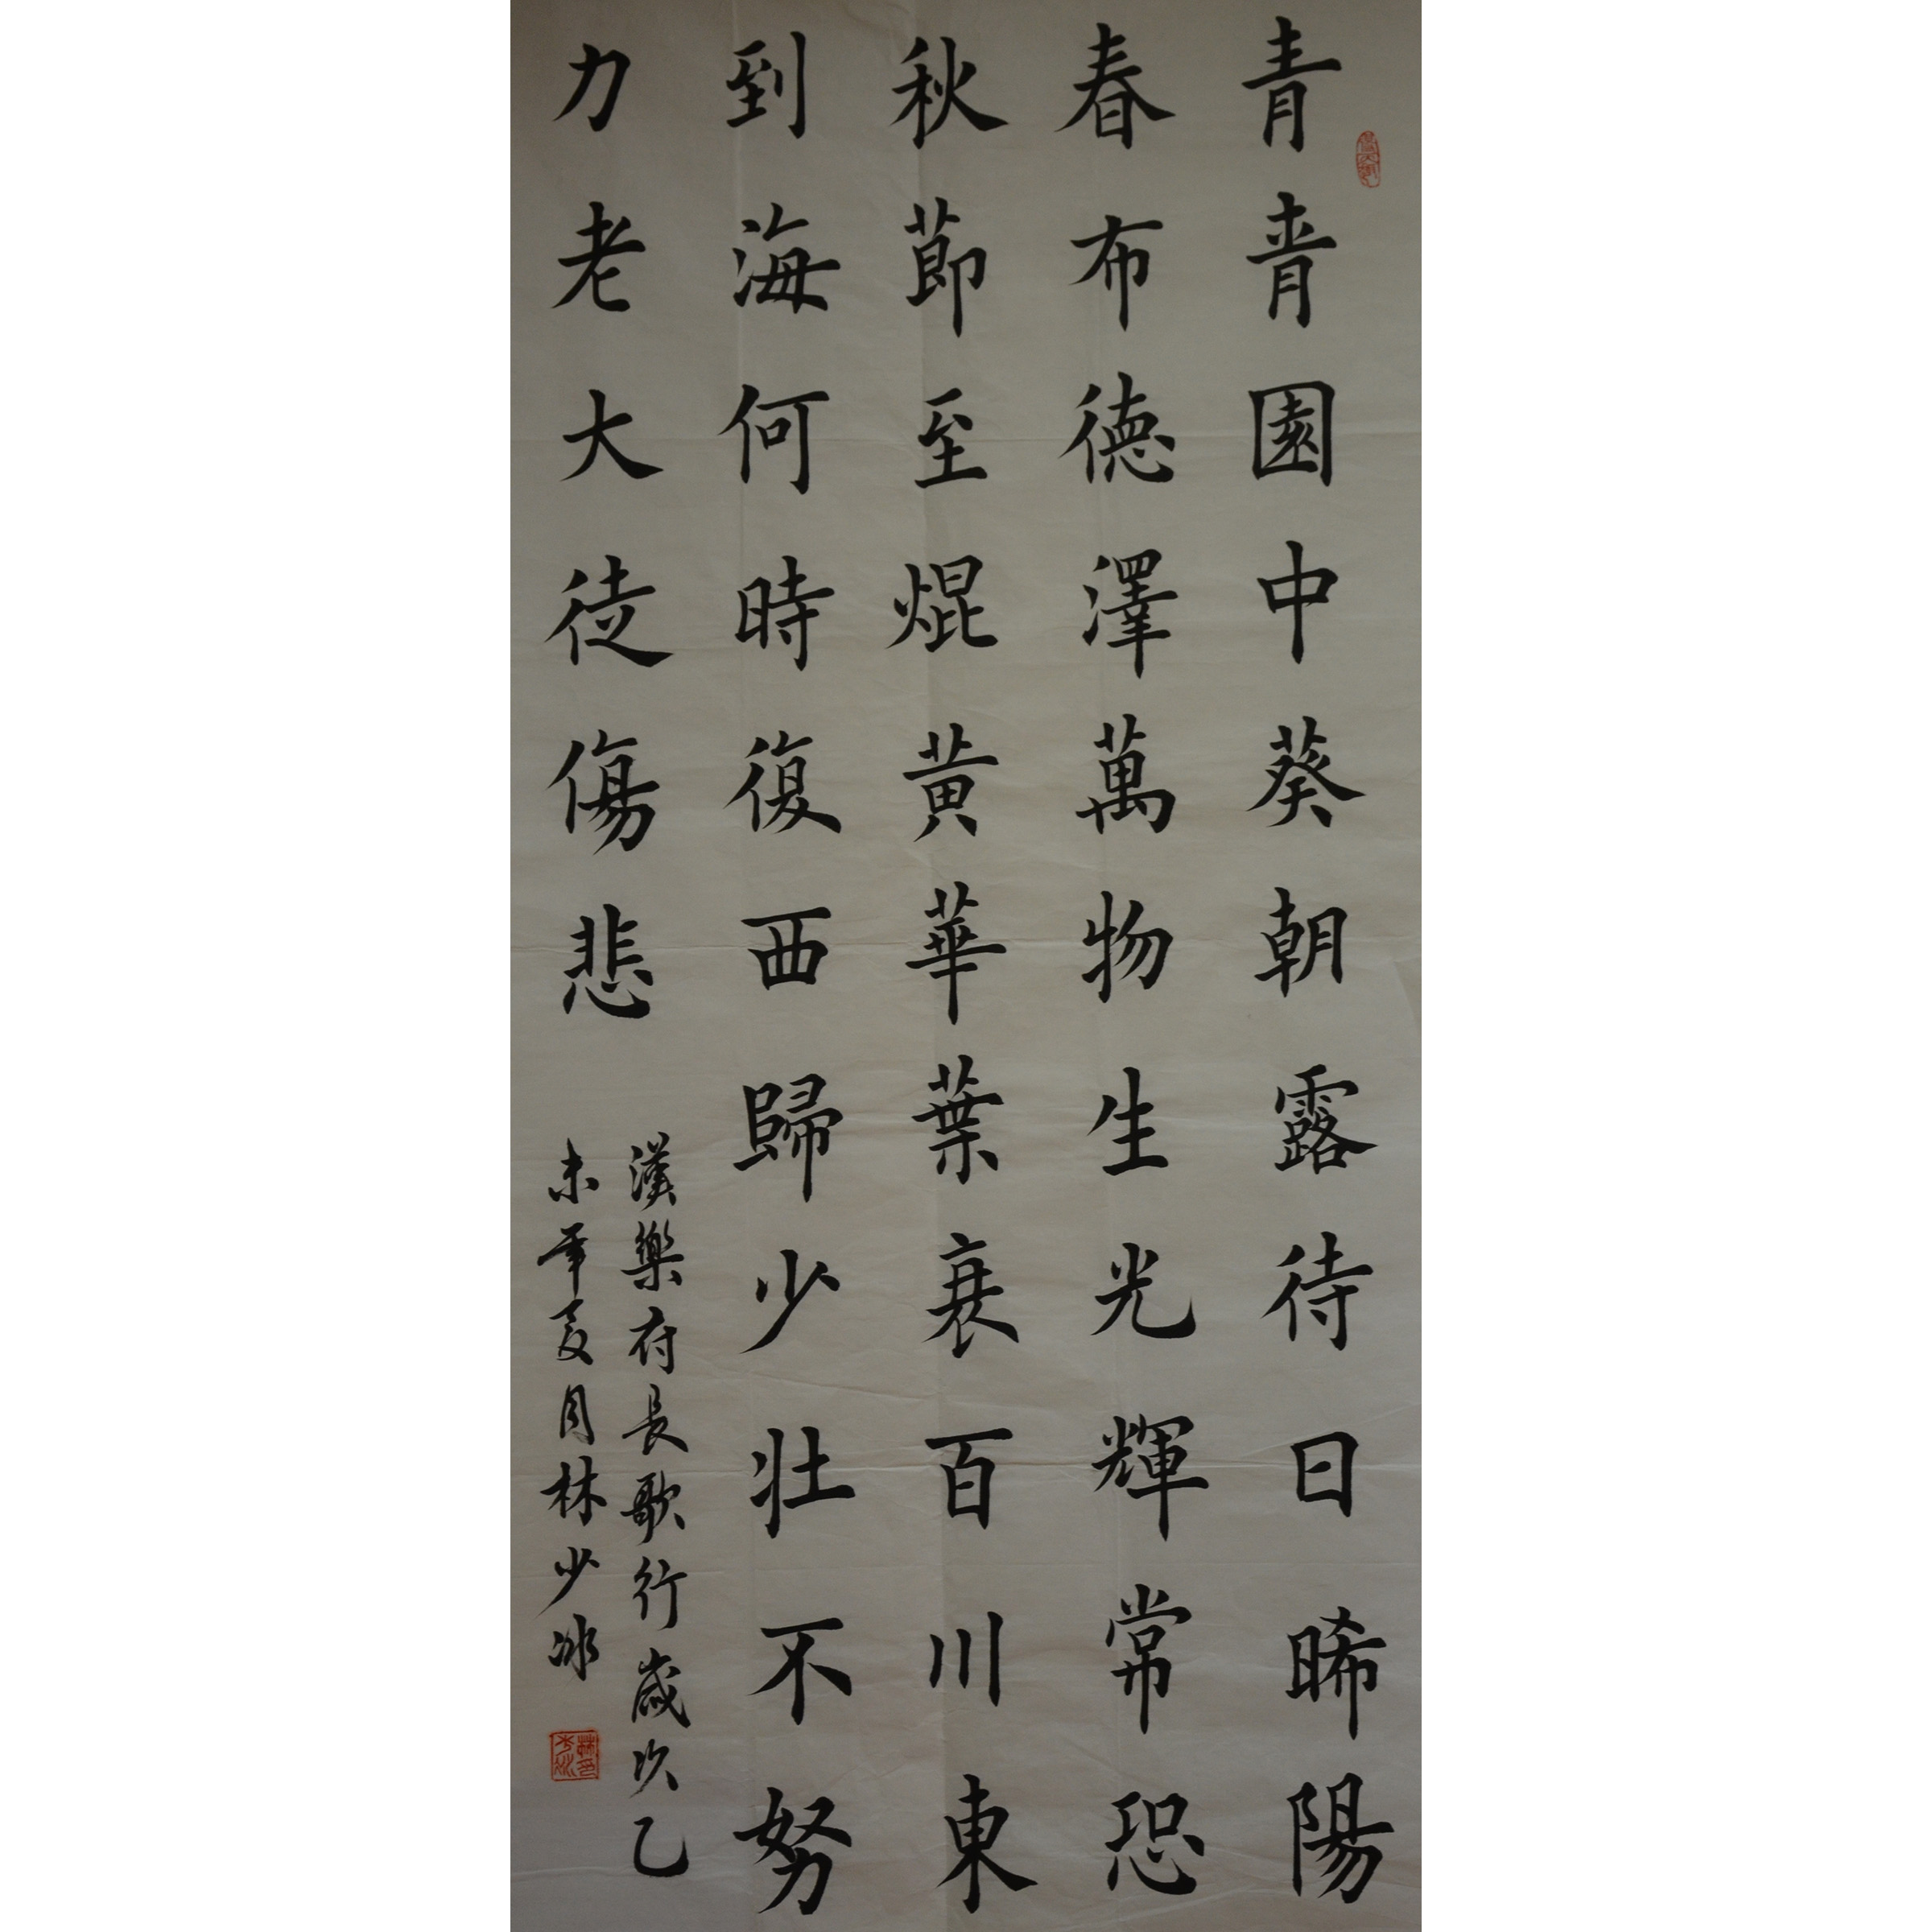 青青園中葵朝露待日晞陽
春布德澤萬物生光輝常恐
秋節至焜黄華葉衰百川東
到海何時復西歸少壯不努
力老大徒傷悲
漢樂府長歌行歲次乙
未年夏月林少冰